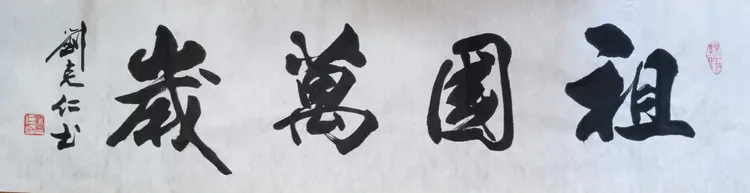 祖國萬歲
劉克仁书